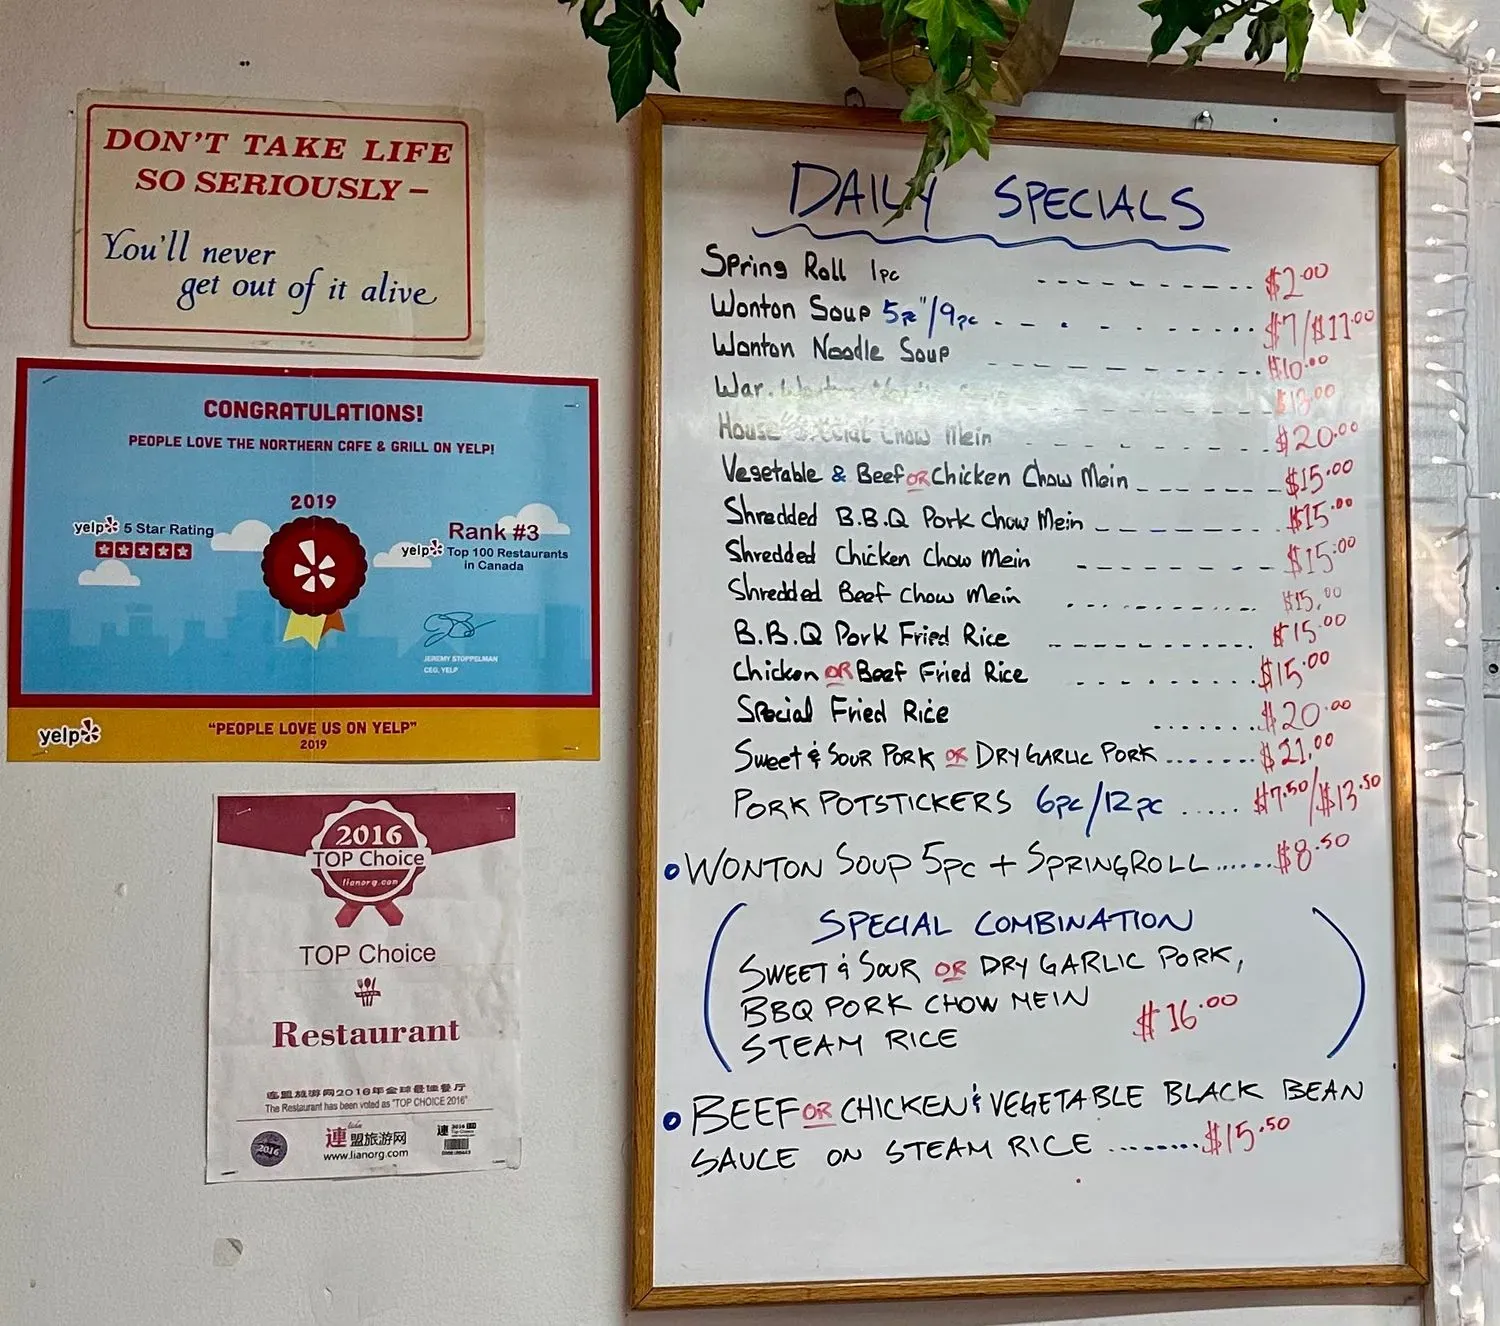 DON'T TAKE LIFE
SO SERIOUSLY—
You'll never
get out of it alive
CONGRATULATIONS!
PEOPLE LOVE THE NORTHERN CAFE & GRILL ON YELP!
2019
yelp 5 Star Rating
Rank #3
yelp Top 100 Restaurants
in Canada
JEREMY STOPPELMAN
CEO, YELP
yelp
"PEOPLE LOVE US ON YELP"
2019
2016
TOP Choice
lianorg.com
TOP Choice
Restaurant
连盟旅游网2016年全球最佳餐厅
The Restaurant has been voted as "TOP CHOICE 2016"
2016
連盟旅游网
www.lianorg.com
DAILY SPECIALS
Spring Roll 1pc $2.00
Wonton Soup 5pc"/9pc $7/$11.00
Wonton Noodle Soup $10.00
War. Wonton $13.00
House Special Chow Mein $20.00
Vegetable & Beef OR Chicken Chow Mein $15.00
Shredded B.B.Q Pork Chow Mein $15.00
Shredded Chicken Chow Mein $15.00
Shredded Beef Chow Mein $15.00
B.B.Q Pork Fried Rice $15.00
Chicken OR Beef Fried Rice $15.00
Special Fried Rice $20.00
Sweet & SOUR PORK OR DRY GARLIC PORK $21.00
PORK POTSTICKERS 6pc/12pc $7.50/$13.50
• WONTON SOUP 5pc + SPRINGROLL $8.50
SPECIAL COMBINATION
SWEET & SOUR OR DRY GARLIC PORK,
BBQ PORK CHOW MEIN
STEAM RICE $16.00
• BEEF OR CHICKEN & VEGETABLE BLACK BEAN
SAUCE ON STEAM RICE $15.50